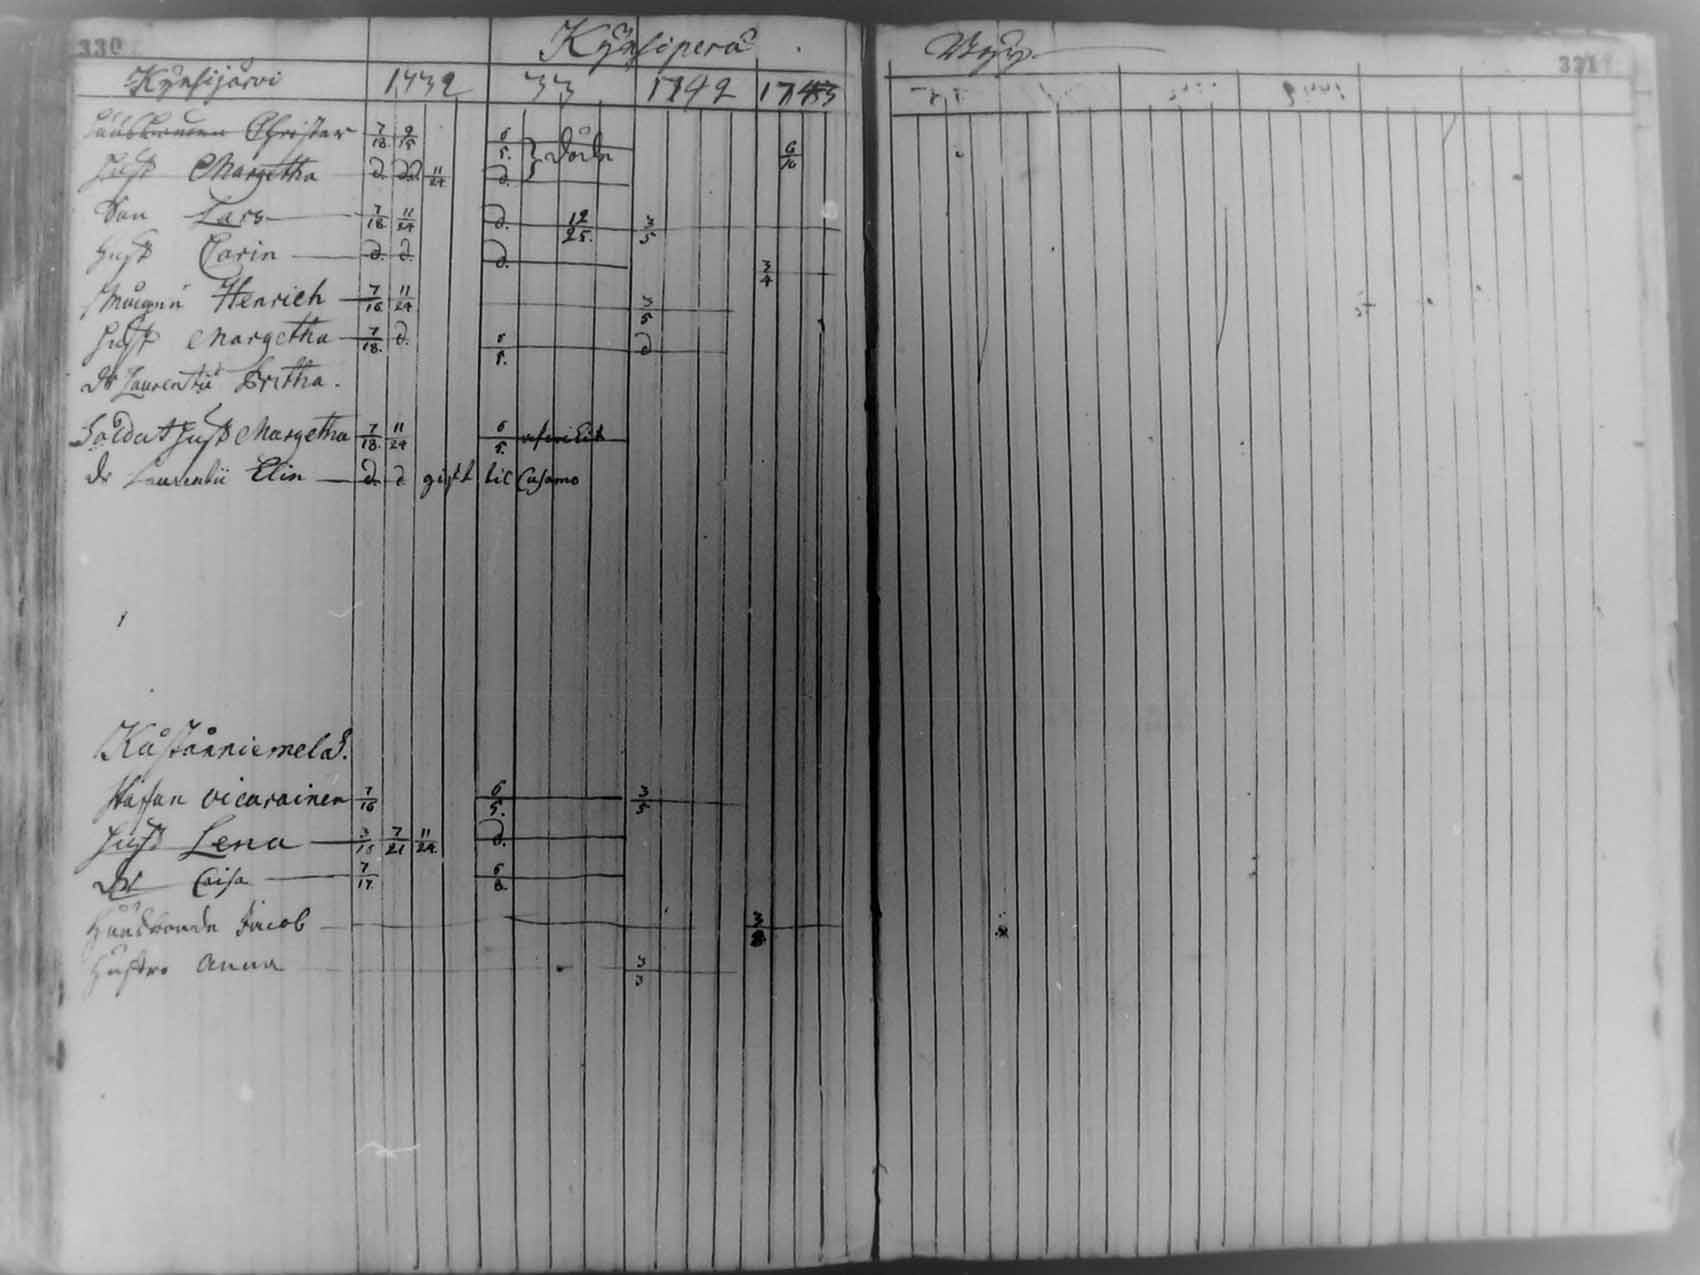 330 Kÿnsiperå Byy. 331
Kÿnsijärvi 1732 33 1742 1743
Christer 7/18 9/15 6/5. döde 6/10
Hust Margetha d. d. 11/24 d.
Son Lars 7/18 11/24 d. 12/25. 3/5
Hust Carin d. d. d. 3/4
Henrich 7/18 11/24 3/5
Hust Margetha 7/18. d. 6/5. d
dr Laurentii Britha.
Soldat Hust Margetha 7/18. 11/24 6/5.
dr Laurentii Elin d. d gift til Cusamo
Kåståniemelä.
Staffan Oicarainen 7/18 6/5. 3/5
Hust Lena 3/15 7/21 11/24 d.
dr Caisa 7/17. 6/8
Jacob 3/8
Hustro Anna 3/3